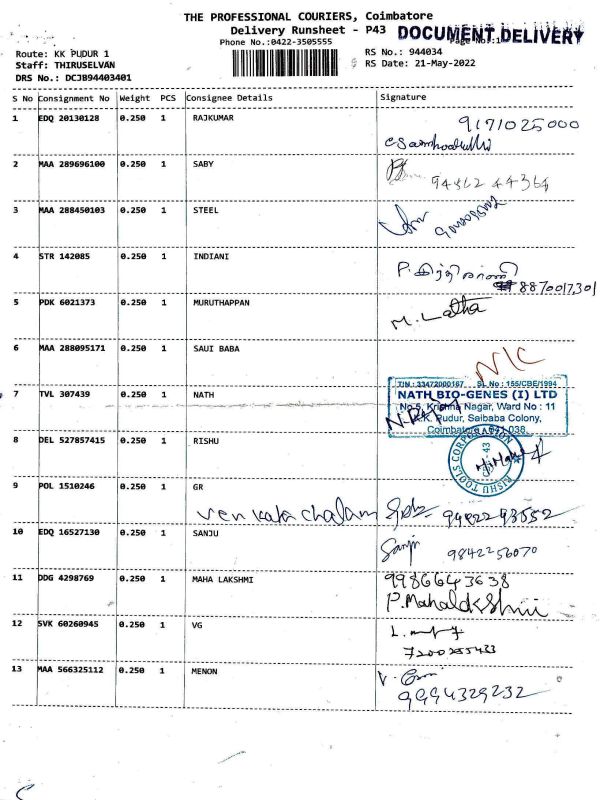 THE PROFESSIONAL COURIERS, Coimbatore
Delivery Runsheet - P43
DOCUMENT DELIVERY
Phone No.:0422-3505555
Page No.:1
Route: KK PUDUR 1
RS No.: 944034
Staff: THIRUSELVAN
RS Date: 21-May-2022
DRS No.: DCJB94403401
S No Consignment No Weight PCS Consignee Details Signature
1 EDQ 20130128 0.250 1 RAJKUMAR 9171025000
2 MAA 289696100 0.250 1 SABY
3 MAA 288450103 0.250 1 STEEL
4 STR 142085 0.250 1 INDIANI
8870017301
5 PDK 6021373 0.250 1 MURUTHAPPAN M. Latha
6 MAA 288095171 0.250 1 SAUI BABA N/C
TIN : 33472000167 SL No : 155/CBE/1994
7 TVL 307439 0.250 1 NATH NATH BIO-GENES (I) LTD
No 5, Krishna Nagar, Ward No : 11
K.K. Pudur, Saibaba Colony,
Coimbatore - 641 038.
8 DEL 527857415 0.250 1 RISHU
RISHU TOOLS CORPORATION
43
9 POL 1510246 0.250 1 GR
Venkata chalam
10 EDQ 16527130 0.250 1 SANJU Sanju
9842256070
11 DDG 4298769 0.250 1 MAHA LAKSHMI 9986643638
P. Mahalakshmi
12 SVK 60260945 0.250 1 VG
7200255433
13 MAA 566325112 0.250 1 MENON
9994329232